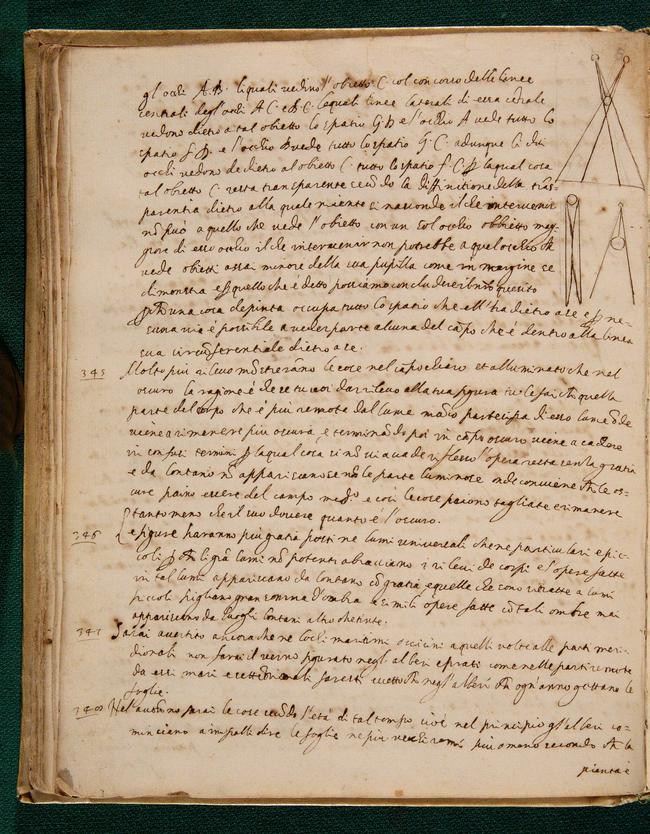 gl'ochi A.B. li quali vedino l'obietto C. col concorso delle linee
centrali degl'ochi A C. e B.C. le quali linee laterali di essa cetrale
vedono dietro a tal obietto lo spatio G.D e l'occhio A vede tutto lo
spatio f.D. e l'occhio B vede tutto lo spatio g.C. adunque li dui
occhi vedono de dietro al obietto C. tutto lo spatio f.C. p la qual cosa
tal obietto C. resta transparente secōdo la diffinitione della tras=
parentia dietro alla quale niente si nasconde il che intervenir
nō può a quello che vede l'obietto con un sol occhio obbietto mag=
giore di esso occhio il che intervenir non potrebbe a quel occhio ch
vede obietti assai minore della sua pupilla come in margine se
dimostra e p quello che è detto possiamo concludere il nostro quesito
pch una cosa depinta occupa tutto lo spatio che ell'ha dietro a se e p ne=
suna via è possibile a veder parte alcuna del campo che è dentro alla linea
sua circōferentiale dietro a se.
345 Molto più rilevo mōstrerāno le cose nel capo chiaro et alluminato che nel
oscuro la ragione è che se tu voi dar rilevo alla tua figura tu le fai ch quella
parte del corpo che è più remota dal lume māco partecipa di esso lume ōde
viene a rimanere più oscura, e terminādo poi in capo oscuro viene a cadere
in cōfusi termini p la qual cosa si nō vi accade riflesso l'opera resta senza gratia
e da lontano nō appariscano se nō le parte luminose onde conviene ch le os=
cure paino essere del campo med.o e cosi le cose paiono tagliate e rimanere
tanto meno che il suo dovere quanto è l'oscuro.
346 Le figure haranno più gratia poste ne lumi universali che ne particulari e pic=
coli p ch li grā lumi nō potenti abracciano i rilevi de corpi e l'opere fatte
in tal lumi appariscano da lontano cō gratia e quelle che sono ritratte a lumi
piccoli pigliano gran somma d'ombra e simili opere fatte cō tali ombre mai
appariscono da luoghi lontani altro che tinte.
347 Sarai avertito ancora che ne lochi maritimi o vicini a quelli volti alle parti meri=
dionali non farai il verno figurato negl'alberi e prati come nelle parti remote
da essi mari e settētrionali faresti eccetto ch negl'alberi ch ogn'anno gettano le
foglie.
348 Nel autōno farai le cose secōdo l'età di tal tempo cioè nel principio gl'alberi co=
minciano a impallidire le foglie ne più vecchi rami più o meno secondo ch la
pianta è